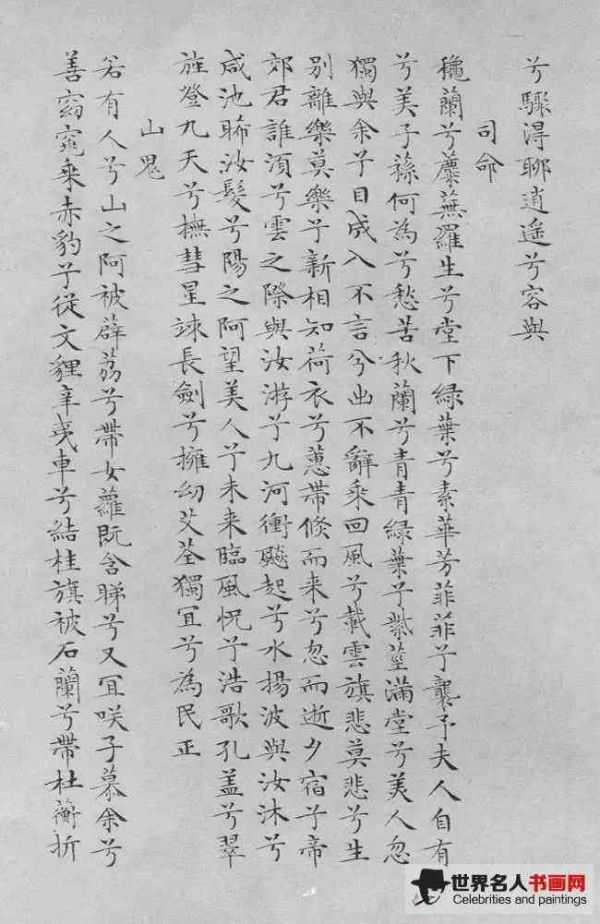 兮驟淂聊逍遥兮容與
司命
穐蘭兮麋蕪羅生兮堂下綠葉兮素華芳菲菲兮襲予夫人自有
兮美子蓀何為兮愁苦秋蘭兮青青綠葉兮紫莖滿堂兮美人忽
獨與余兮目成入不言兮出不辭乘回風兮載雲旗悲莫悲兮生
別離樂莫樂兮新相知荷衣兮蕙帶倐而来兮忽而逝夕宿兮帝
郊君誰湏兮雲之際與汝游兮九河衝飈起兮水揚波與汝沐兮
咸池晞汝髮兮陽之阿望美人兮未来臨風怳兮浩歌孔盖兮翠
旌登九天兮撫彗星竦長劍兮擁幼艾荃獨冝兮為民正
山鬼
若有人兮山之阿被薜荔兮帶女蘿既含睇兮又冝咲子慕余兮
善窈窕乘赤豹兮從文貍辛夷車兮結桂旗被石蘭兮帶杜蘅折
世界名人书画网
Celebrities and paintings